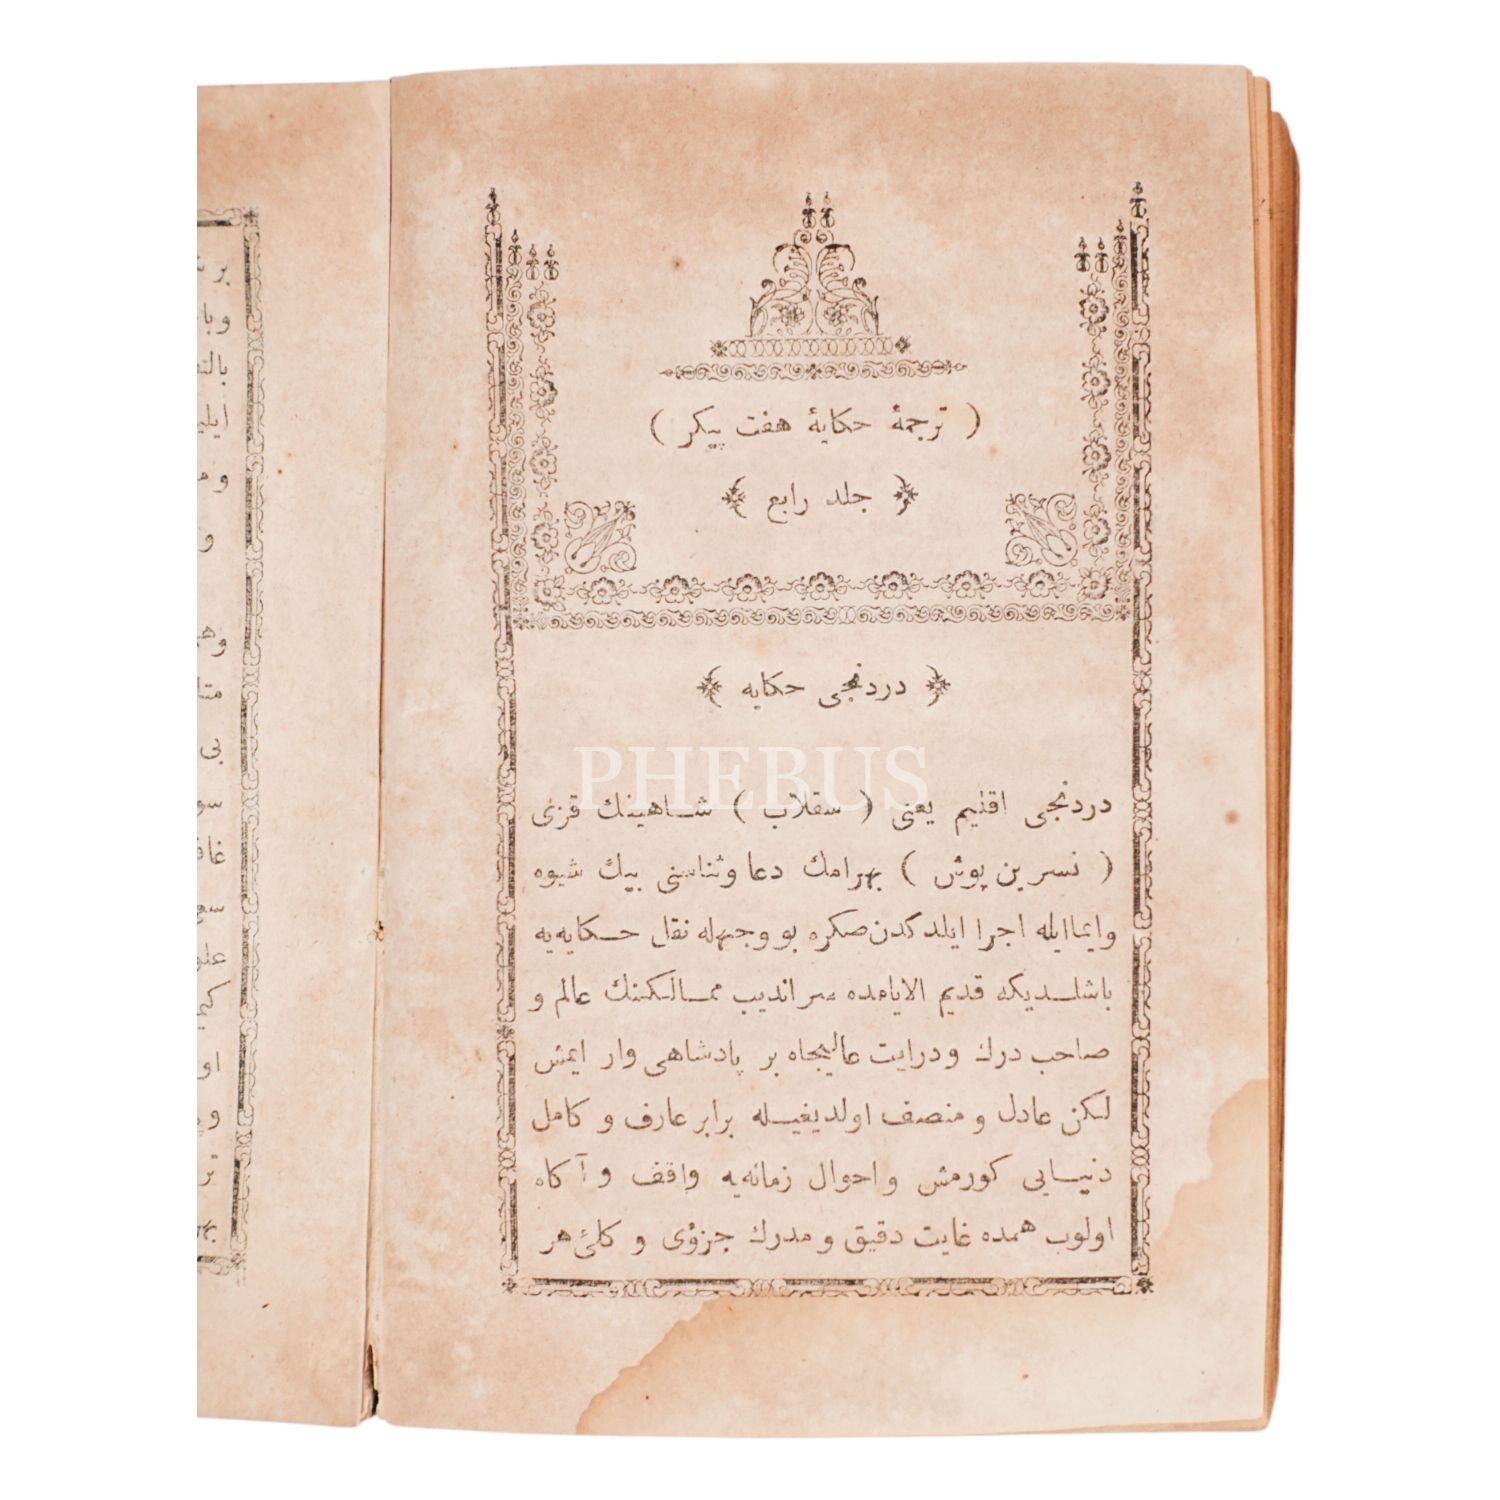 ( ترجمۀ حكایۀ هفت پیكر )
﴿ جلد رابع ﴾
﴿ دردنجی حكایه ﴾
PHEBUS
دردنجی اقلیم یعنی ( سقلاب ) شاهینك قزی
( نسرین پوش ) بهرامك دعا وثناسنی بیك شیوه
وایما ایله اجرا ایلدكدن صكره بو وجهله نقل حكایه‌یه
باشلدیكه قدیم الایامده سراندیب ممالكنك عالم و
صاحب درك ودرایت عالیجاه بر پادشاهی وار ایمش
لكن عادل و منصف اولدیغیله برابر عارف و كامل
دنیایی كورمش و احوال زمانه‌یه واقف و آكاه
اولوب همده غایت دقیق و مدرك جزؤی و كلئ هر